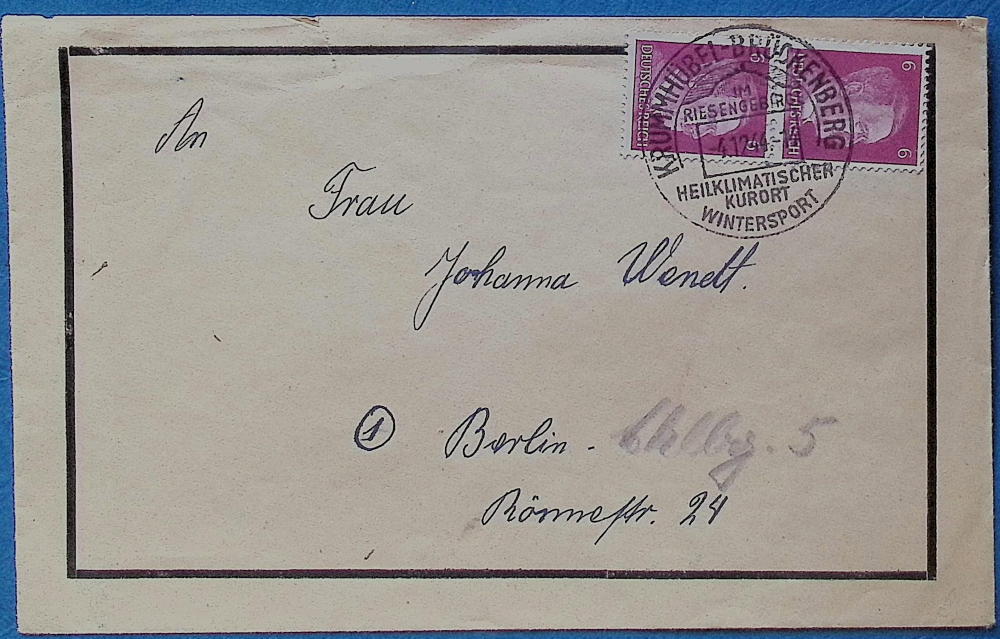 An
Frau
Johanna Wendt.
① Berlin - Chlbg. 5
Rönnestr. 24
DEUTSCHES REICH
6
6
6
6
KRUMMHÜBEL-BRÜCKENBERG
IM
RIESENGEBIRGE
-4.12.44
HEILKLIMATISCHER
KURORT
WINTERSPORT